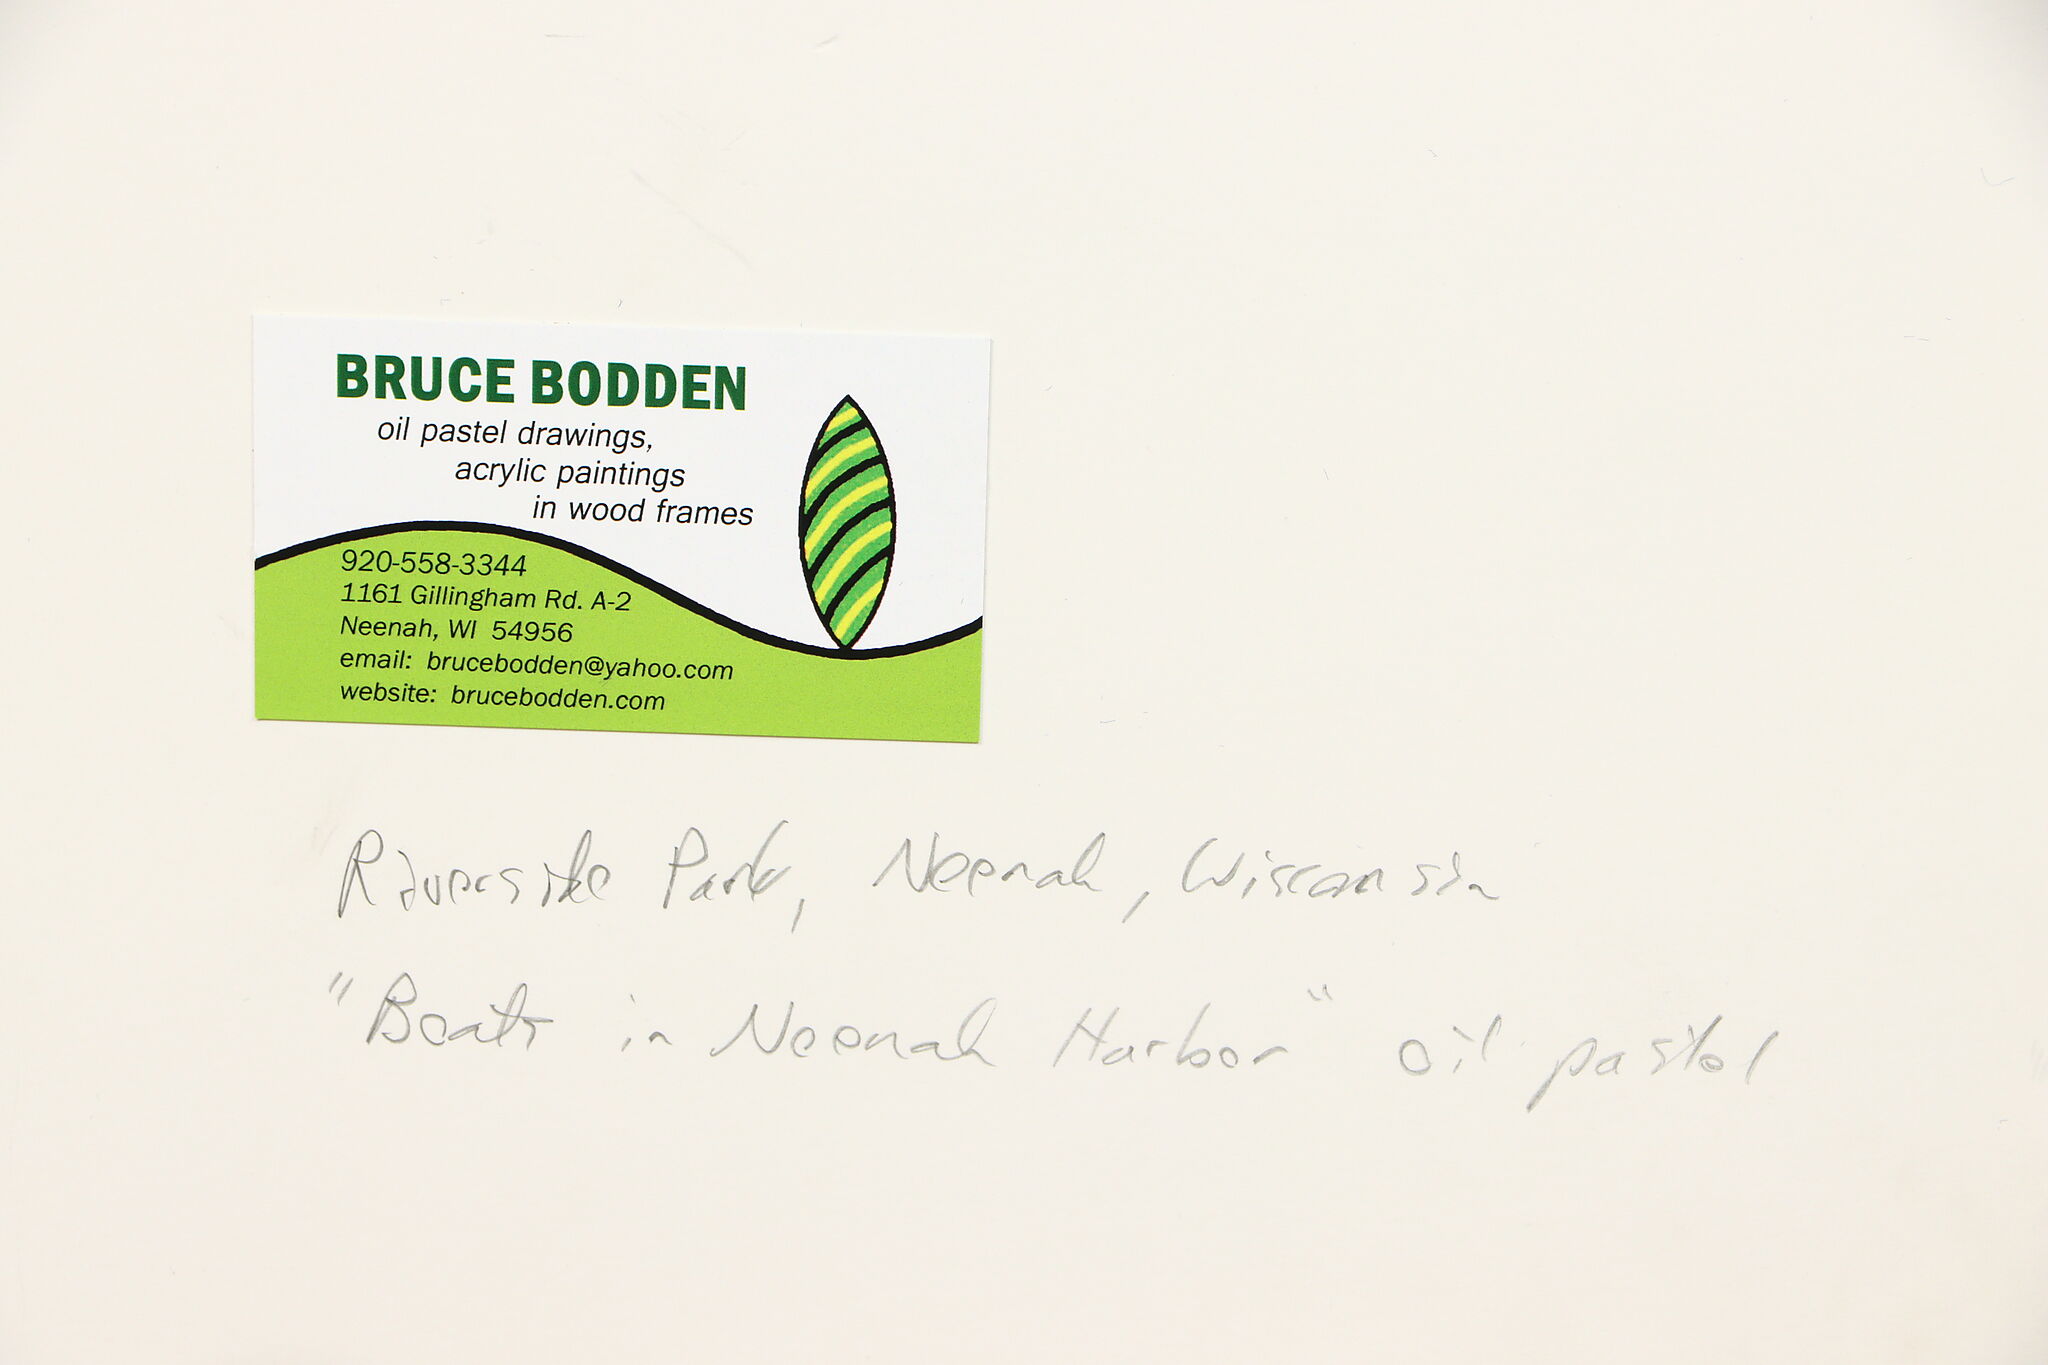 BRUCE BODDEN
oil pastel drawings,
acrylic paintings
in wood frames
920-558-3344
1161 Gillingham Rd. A-2
Neenah, WI 54956
email: brucebodden@yahoo.com
website: brucebodden.com
Riverside Park, Neenah, Wisconsin
"Boats in Neenah Harbor" oil pastel